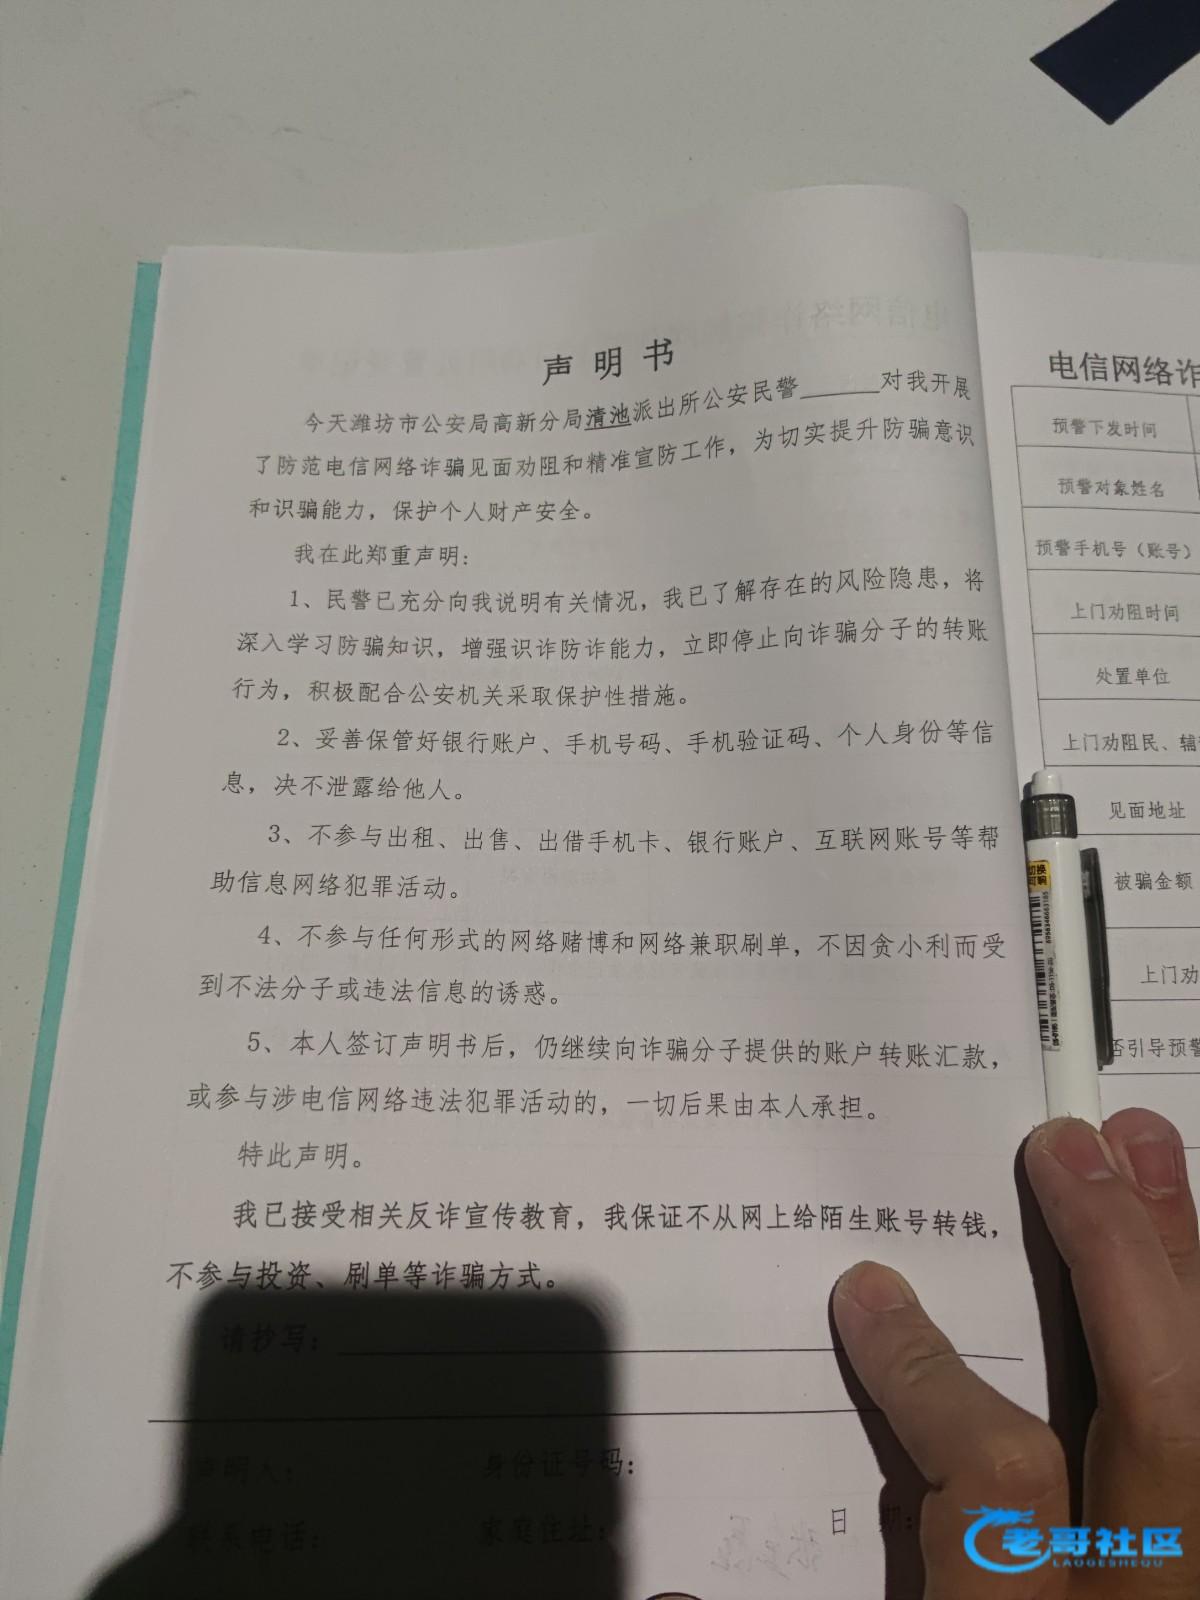 声明书
今天潍坊市公安局高新分局清池派出所公安民警______对我开展
了防范电信网络诈骗见面劝阻和精准宣防工作，为切实提升防骗意识
和识骗能力，保护个人财产安全。
我在此郑重声明：
1、民警已充分向我说明有关情况，我已了解存在的风险隐患，将
深入学习防骗知识，增强识诈防诈能力，立即停止向诈骗分子的转账
行为，积极配合公安机关采取保护性措施。
2、妥善保管好银行账户、手机号码、手机验证码、个人身份等信
息，决不泄露给他人。
3、不参与出租、出售、出借手机卡、银行账户、互联网账号等帮
助信息网络犯罪活动。
4、不参与任何形式的网络赌博和网络兼职刷单，不因贪小利而受
到不法分子或违法信息的诱惑。
5、本人签订声明书后，仍继续向诈骗分子提供的账户转账汇款，
或参与涉电信网络违法犯罪活动的，一切后果由本人承担。
特此声明。
我已接受相关反诈宣传教育，我保证不从网上给陌生账号转钱，
不参与投资、刷单等诈骗方式。
请抄写：
声明人： 身份证号码：
联系电话： 家庭住址： 日 期：
电信网络诈
预警下发时间
预警对象姓名
预警手机号（账号）
上门劝阻时间
处置单位
上门劝阻民、辅
见面地址
被骗金额
上门劝
否引导预警
切换
可购
老哥社区
LAOGESHEQU